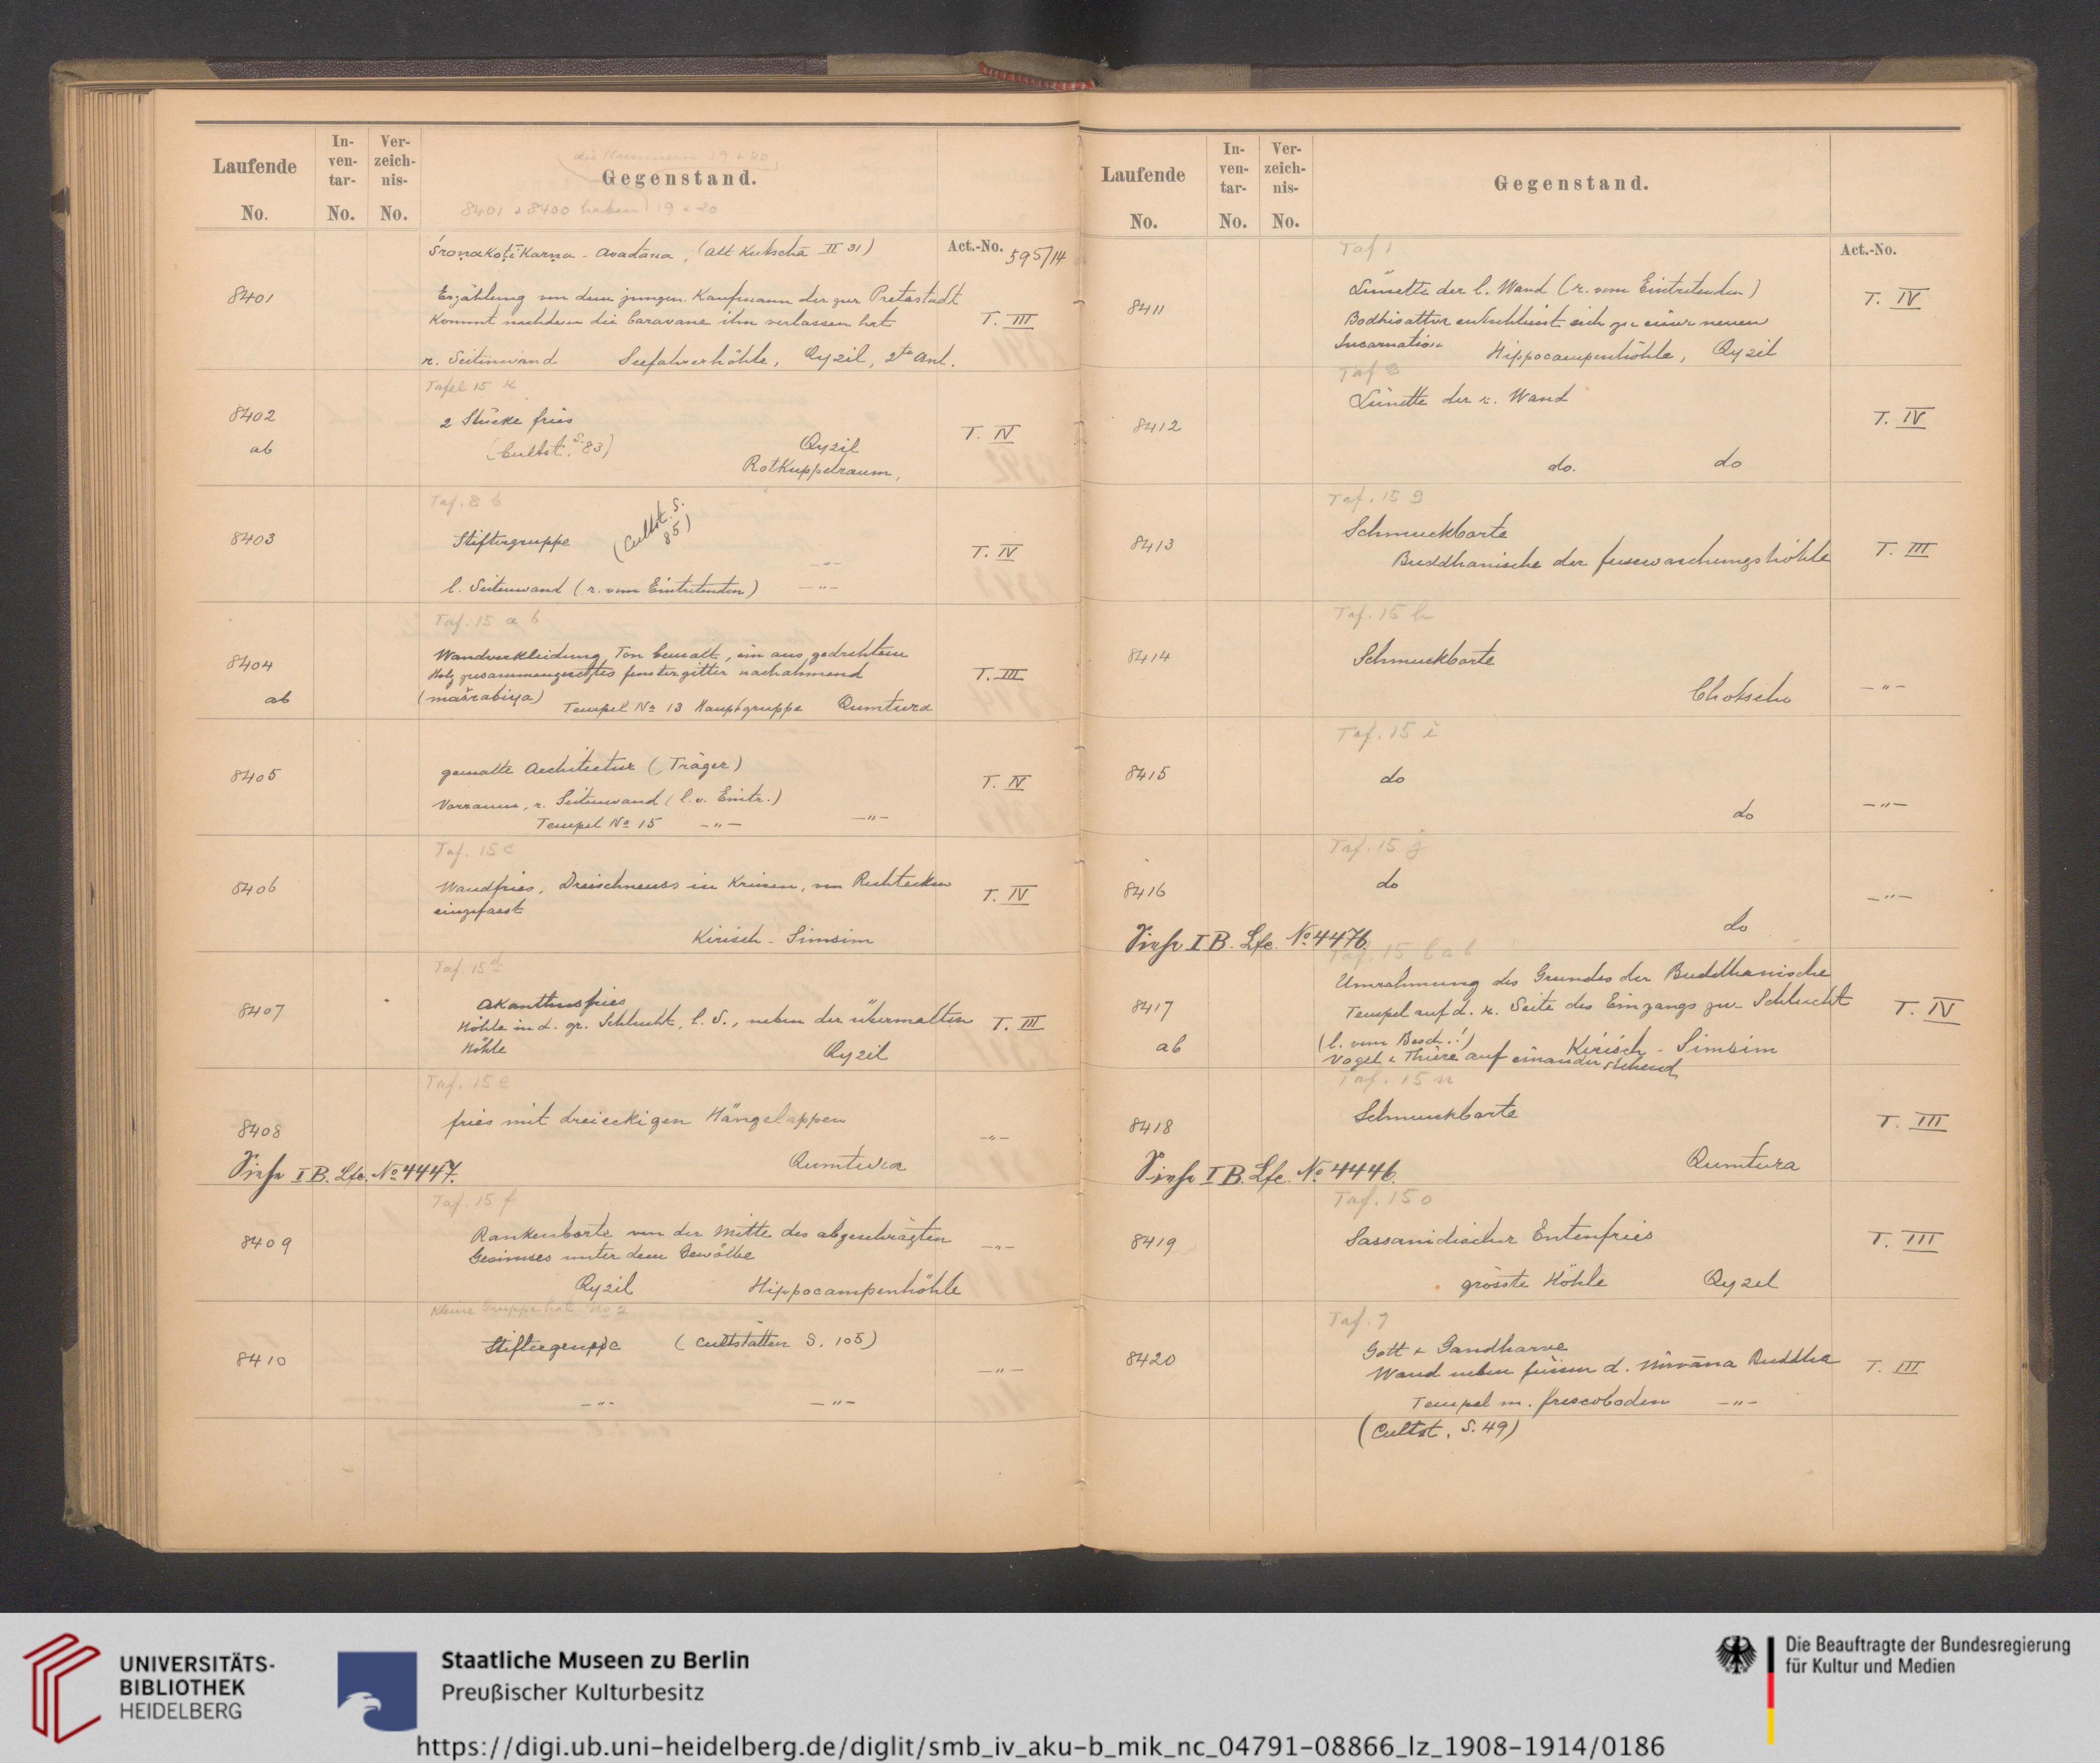 Laufende No.
In-ven-tar- No.
Ver-zeich-nis- No.
die Nummern 19 & 20
Gegenstand.
8401 & 8400 haben 19 & 20
Act.-No. 595/14
Śroṇakoṭīkarṇa - Avadāna, (Alt Kutscha II 31)
8401
Erzählung von dem jungen Kaufmann der zur Pretastadt
kommt nachdem die Caravane ihn verlassen hat
T. III
r. Seitenwand Seefahrerhöhle, Qyzil, 2te Anl.
Tafel 15 k
8402
ab
2 Stücke fries
(Cultst. S. 83)
Qyzil
Rotkuppelraum,
T. IV
Taf. 8 b
8403
Stiftergruppe
(Cultst. S. 85)
T. IV
-"-
l. Seitenwand (r. vom Eintretenden) -"-
Taf. 15 a b
8404
ab
Wandverkleidung Ton bemalt, ein aus gedrehtem
Holz zusammengesetztes fenstergitter nachahmend
(mašrabiya) Tempel No 13 Hauptgruppe Qumtura
T. III
8405
gemalte Architectur (Träger)
Vorraum, r. Seitenwand (l. v. Eintr.)
Tempel No 15 -"- -"-
T. IV
Taf. 15 c
8406
Wandfries, Dreischneuss in Kreisen, von Rechtecken
eingefasst
T. IV
Kirisch - Simsim
Taf. 15 d
8407
Akanthusfries
Höhle in d. gr. Schlucht, l. S., neben der übermalten
Höhle Qyzil
T. III
Taf. 15 e
8408
fries mit dreieckigen Hängelappen
-"-
Qumtura
Siehe I B. Lfe. No 4447.
Taf. 15 f
8409
Rankenborte von der Mitte des abgeschrägten
Gesimses unter dem Gewölbe
-"-
Qyzil Hippocampenhöhle
kleine Gruppe hat No 2
8410
Stiftergruppe (Cultstätten S. 105)
-"-
-"- -"-
Laufende No.
In-ven-tar- No.
Ver-zeich-nis- No.
Gegenstand.
Act.-No.
Taf 1
8411
Lünette der l. Wand (r. vom Eintretenden)
Bodhisattva entschliesst sich zu einer neuen
Incarnation Hippocampenhöhle, Qyzil
T. IV
Taf 2
8412
Lünette der r. Wand
T. IV
do. do
Taf. 15 g
8413
Schmuckborte
Buddhanische der fusswaschungshöhle
T. III
Taf. 15 h
8414
Schmuckborte
Chotscho
-"-
Taf. 15 i
8415
do
do
-"-
Taf. 15 j
8416
do
do
-"-
Siehe I B. Lfe. No 4476.
Taf. 15 l a b
8417
ab
Umrahmung des Grundes der Buddhanische
Tempel auf d. r. Seite des Eingangs zur Schlucht
(l. vom Besch.!) Kirisch - Simsim
Vögel & Thiere auf einander stehend
T. IV
Taf. 15 n
8418
Schmuckborte
T. III
Qumtura
Siehe I B. Lfe. No 4446.
Taf. 15 o
8419
Sassanidischer Entenfries
T. III
grösste Höhle Qyzel
Taf. 7
8420
Gott & Gandharve
Wand neben füssen d. Nirvāna Buddha
Tempel m. frescoboden -"-
(Cultst. S. 49)
T. III
UNIVERSITÄTS-
BIBLIOTHEK
HEIDELBERG
Staatliche Museen zu Berlin
Preußischer Kulturbesitz
Die Beauftragte der Bundesregierung
für Kultur und Medien
https://digi.ub.uni-heidelberg.de/diglit/smb_iv_aku-b_mik_nc_04791-08866_lz_1908-1914/0186